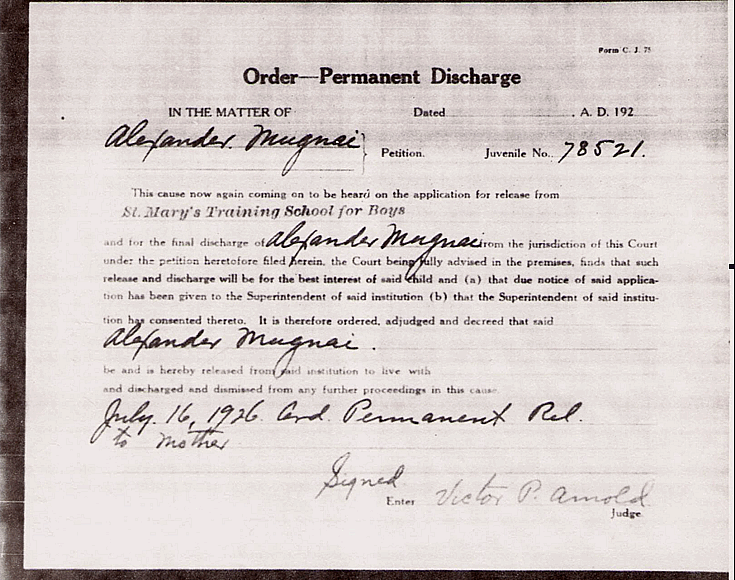 Form C. J. 75
Order—Permanent Discharge
IN THE MATTER OF Dated , A. D. 192
Alexander Mugnai } Petition. Juvenile No. 78521.
This cause now again coming on to be heard on the application for release from
St. Mary's Training School for Boys
and for the final discharge of Alexander Mugnai from the jurisdiction of this Court
under the petition heretofore filed herein, the Court being fully advised in the premises, finds that such
release and discharge will be for the best interest of said child and (a) that due notice of said applica-
tion has been given to the Superintendent of said institution (b) that the Superintendent of said institu-
tion has consented thereto. It is therefore ordered, adjudged and decreed that said
Alexander Mugnai.
be and is hereby released from said institution to live with
and discharged and dismissed from any further proceedings in this cause.
July. 16, 1926. Ord. Permanent Rel.
to Mother
Signed
Enter Victor P. Arnold
Judge.